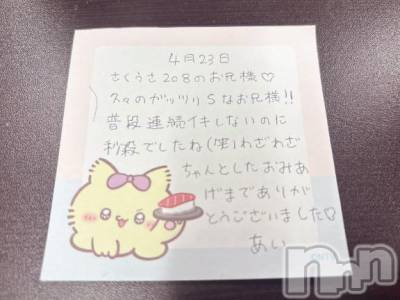 4月23日
さくらさ208のお兄様♡
久々のガッツリSなお兄様!!
普段連続イキしないのに
秒殺でしたね(笑)わざわざ
ちゃんとしたおみあ
げまでありが
とうございました♡
あい
nmn